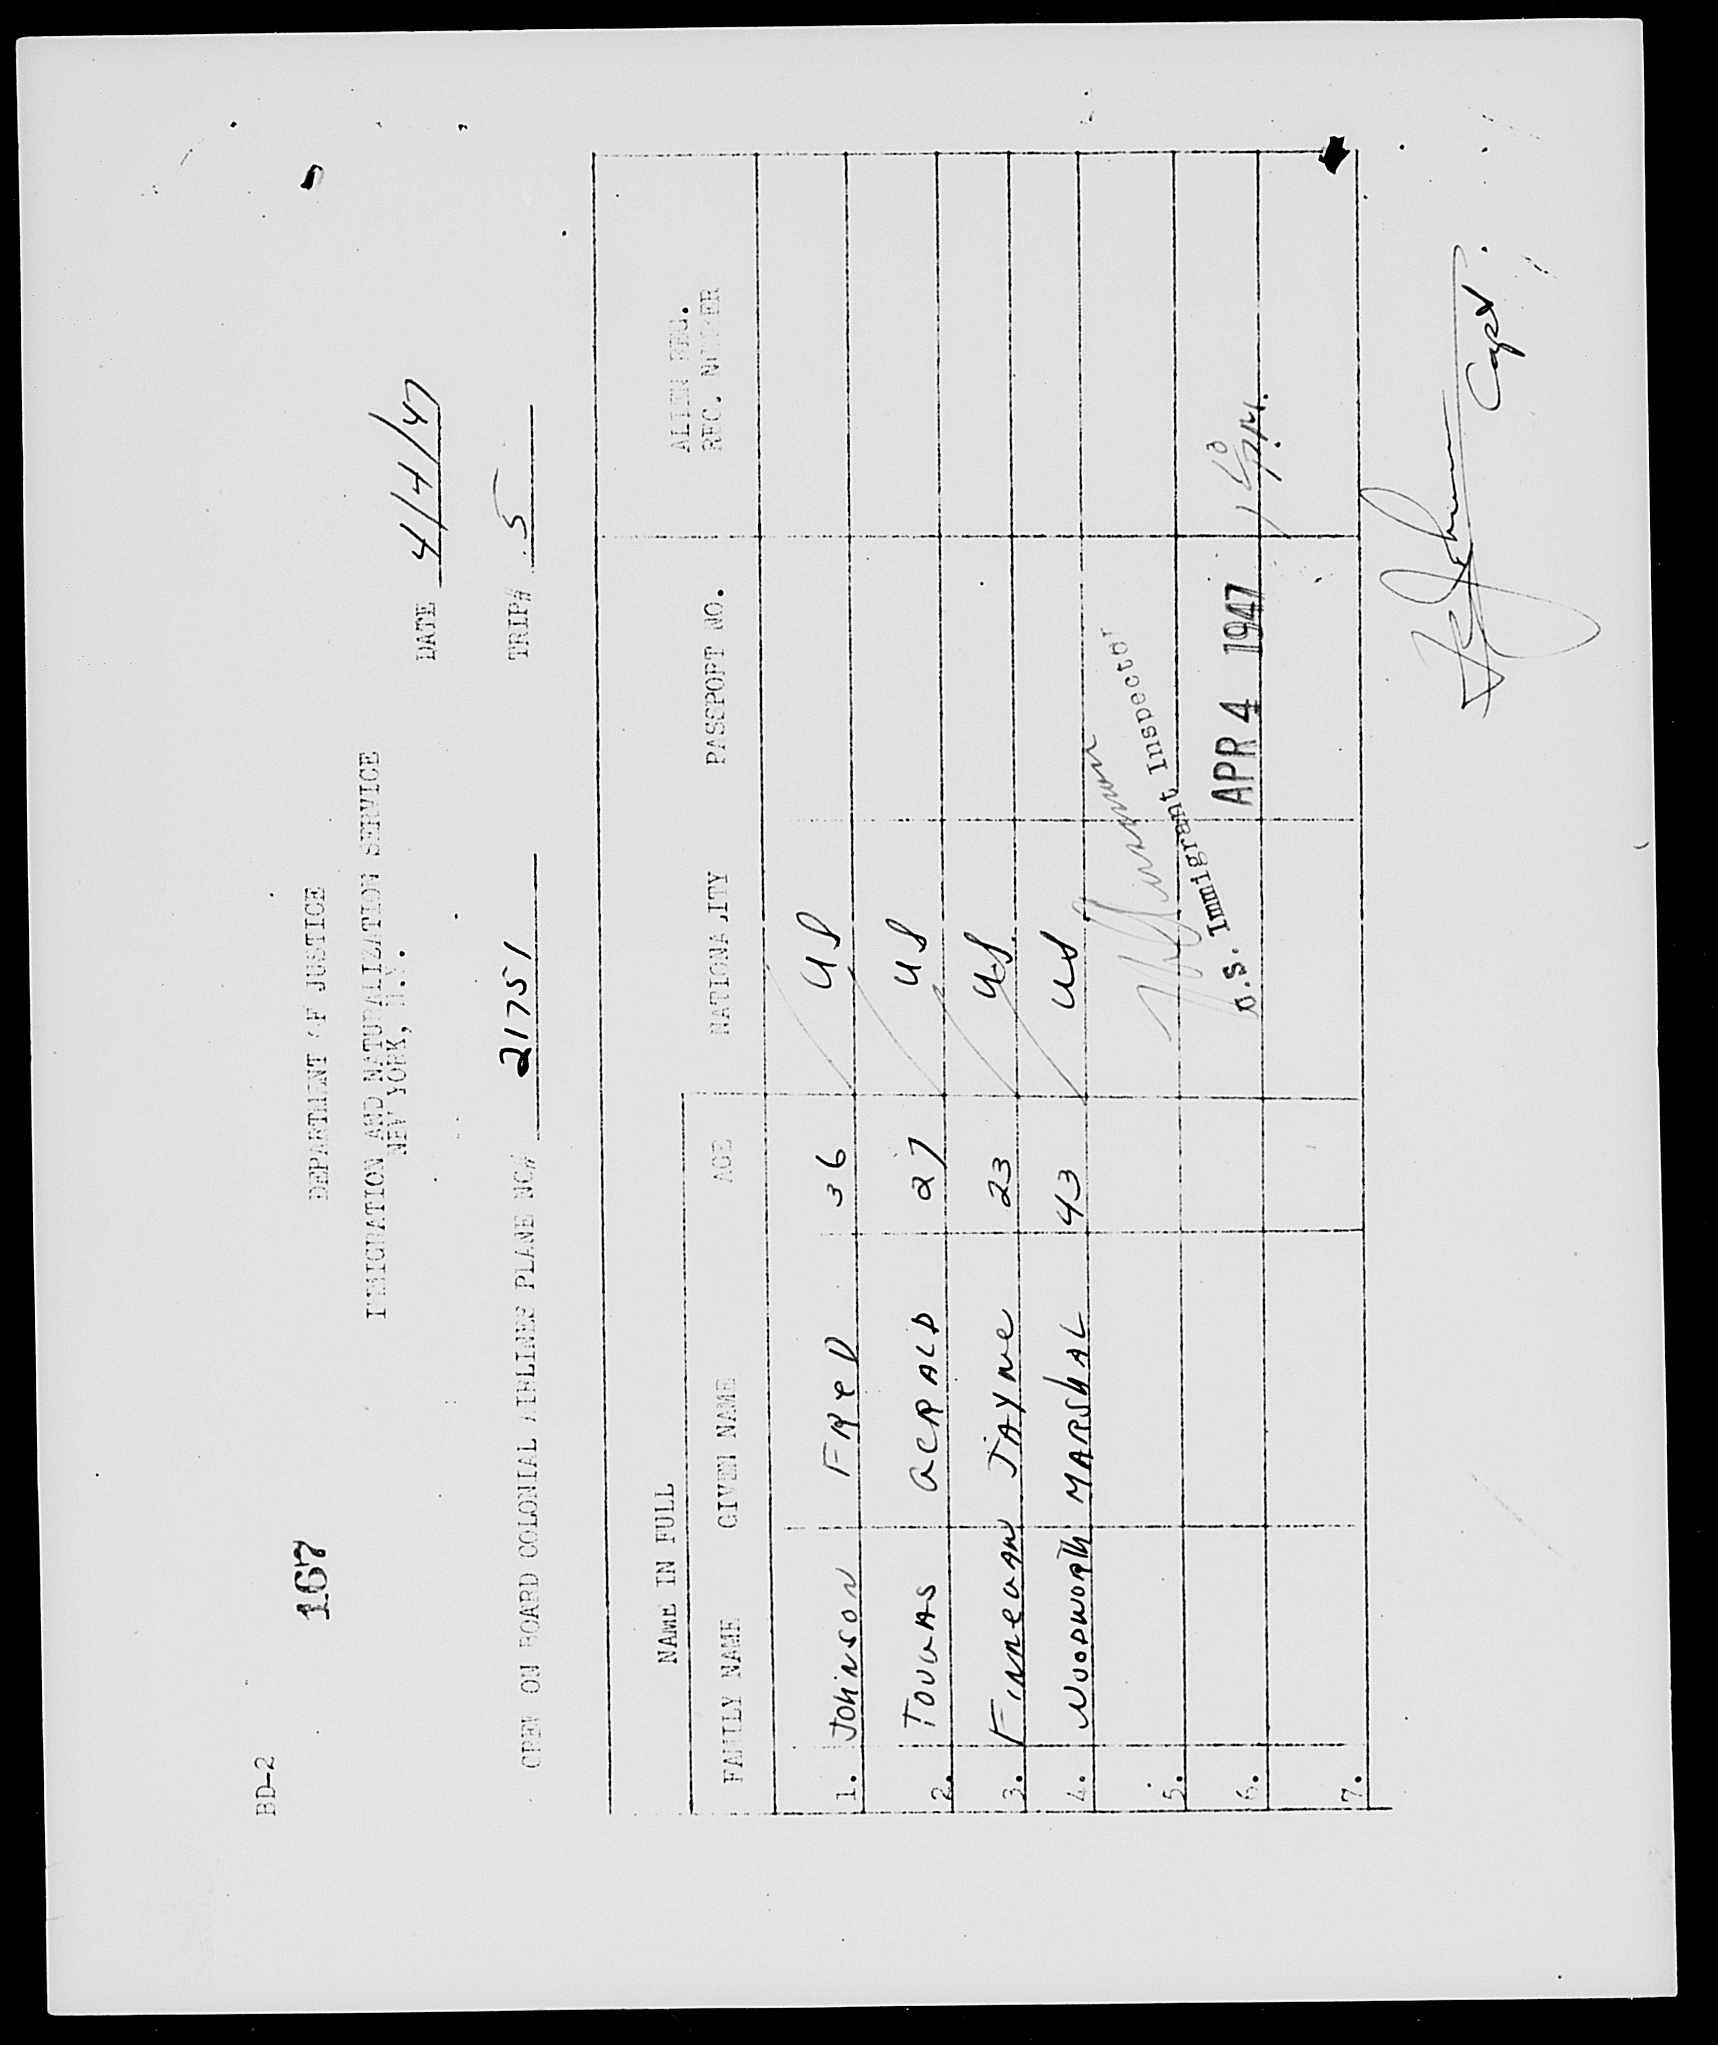 BD-2
167
DEPARTMENT OF JUSTICE
IMMIGRATION AND NATURALIZATION SERVICE
NEW YORK, N.Y.
DATE 4/4/47
CREW ON BOARD COLONIAL AIRLINES PLANE NO# 21751 TRIP# 5
NAME IN FULL
FAMILY NAME GIVEN NAME AGE NATIONALITY PASSPORT NO. ALIEN REG. REC. NUMBER
1. JOHNSON FRED 36 US
2. TOUGAS GERALD 27 US
3. FINNEGAN JAYNE 23 US
4. WOODWORTH MARSHAL 43 US
5.
U.S. Immigrant Inspector
6. APR 4 1947
7.
Capt.